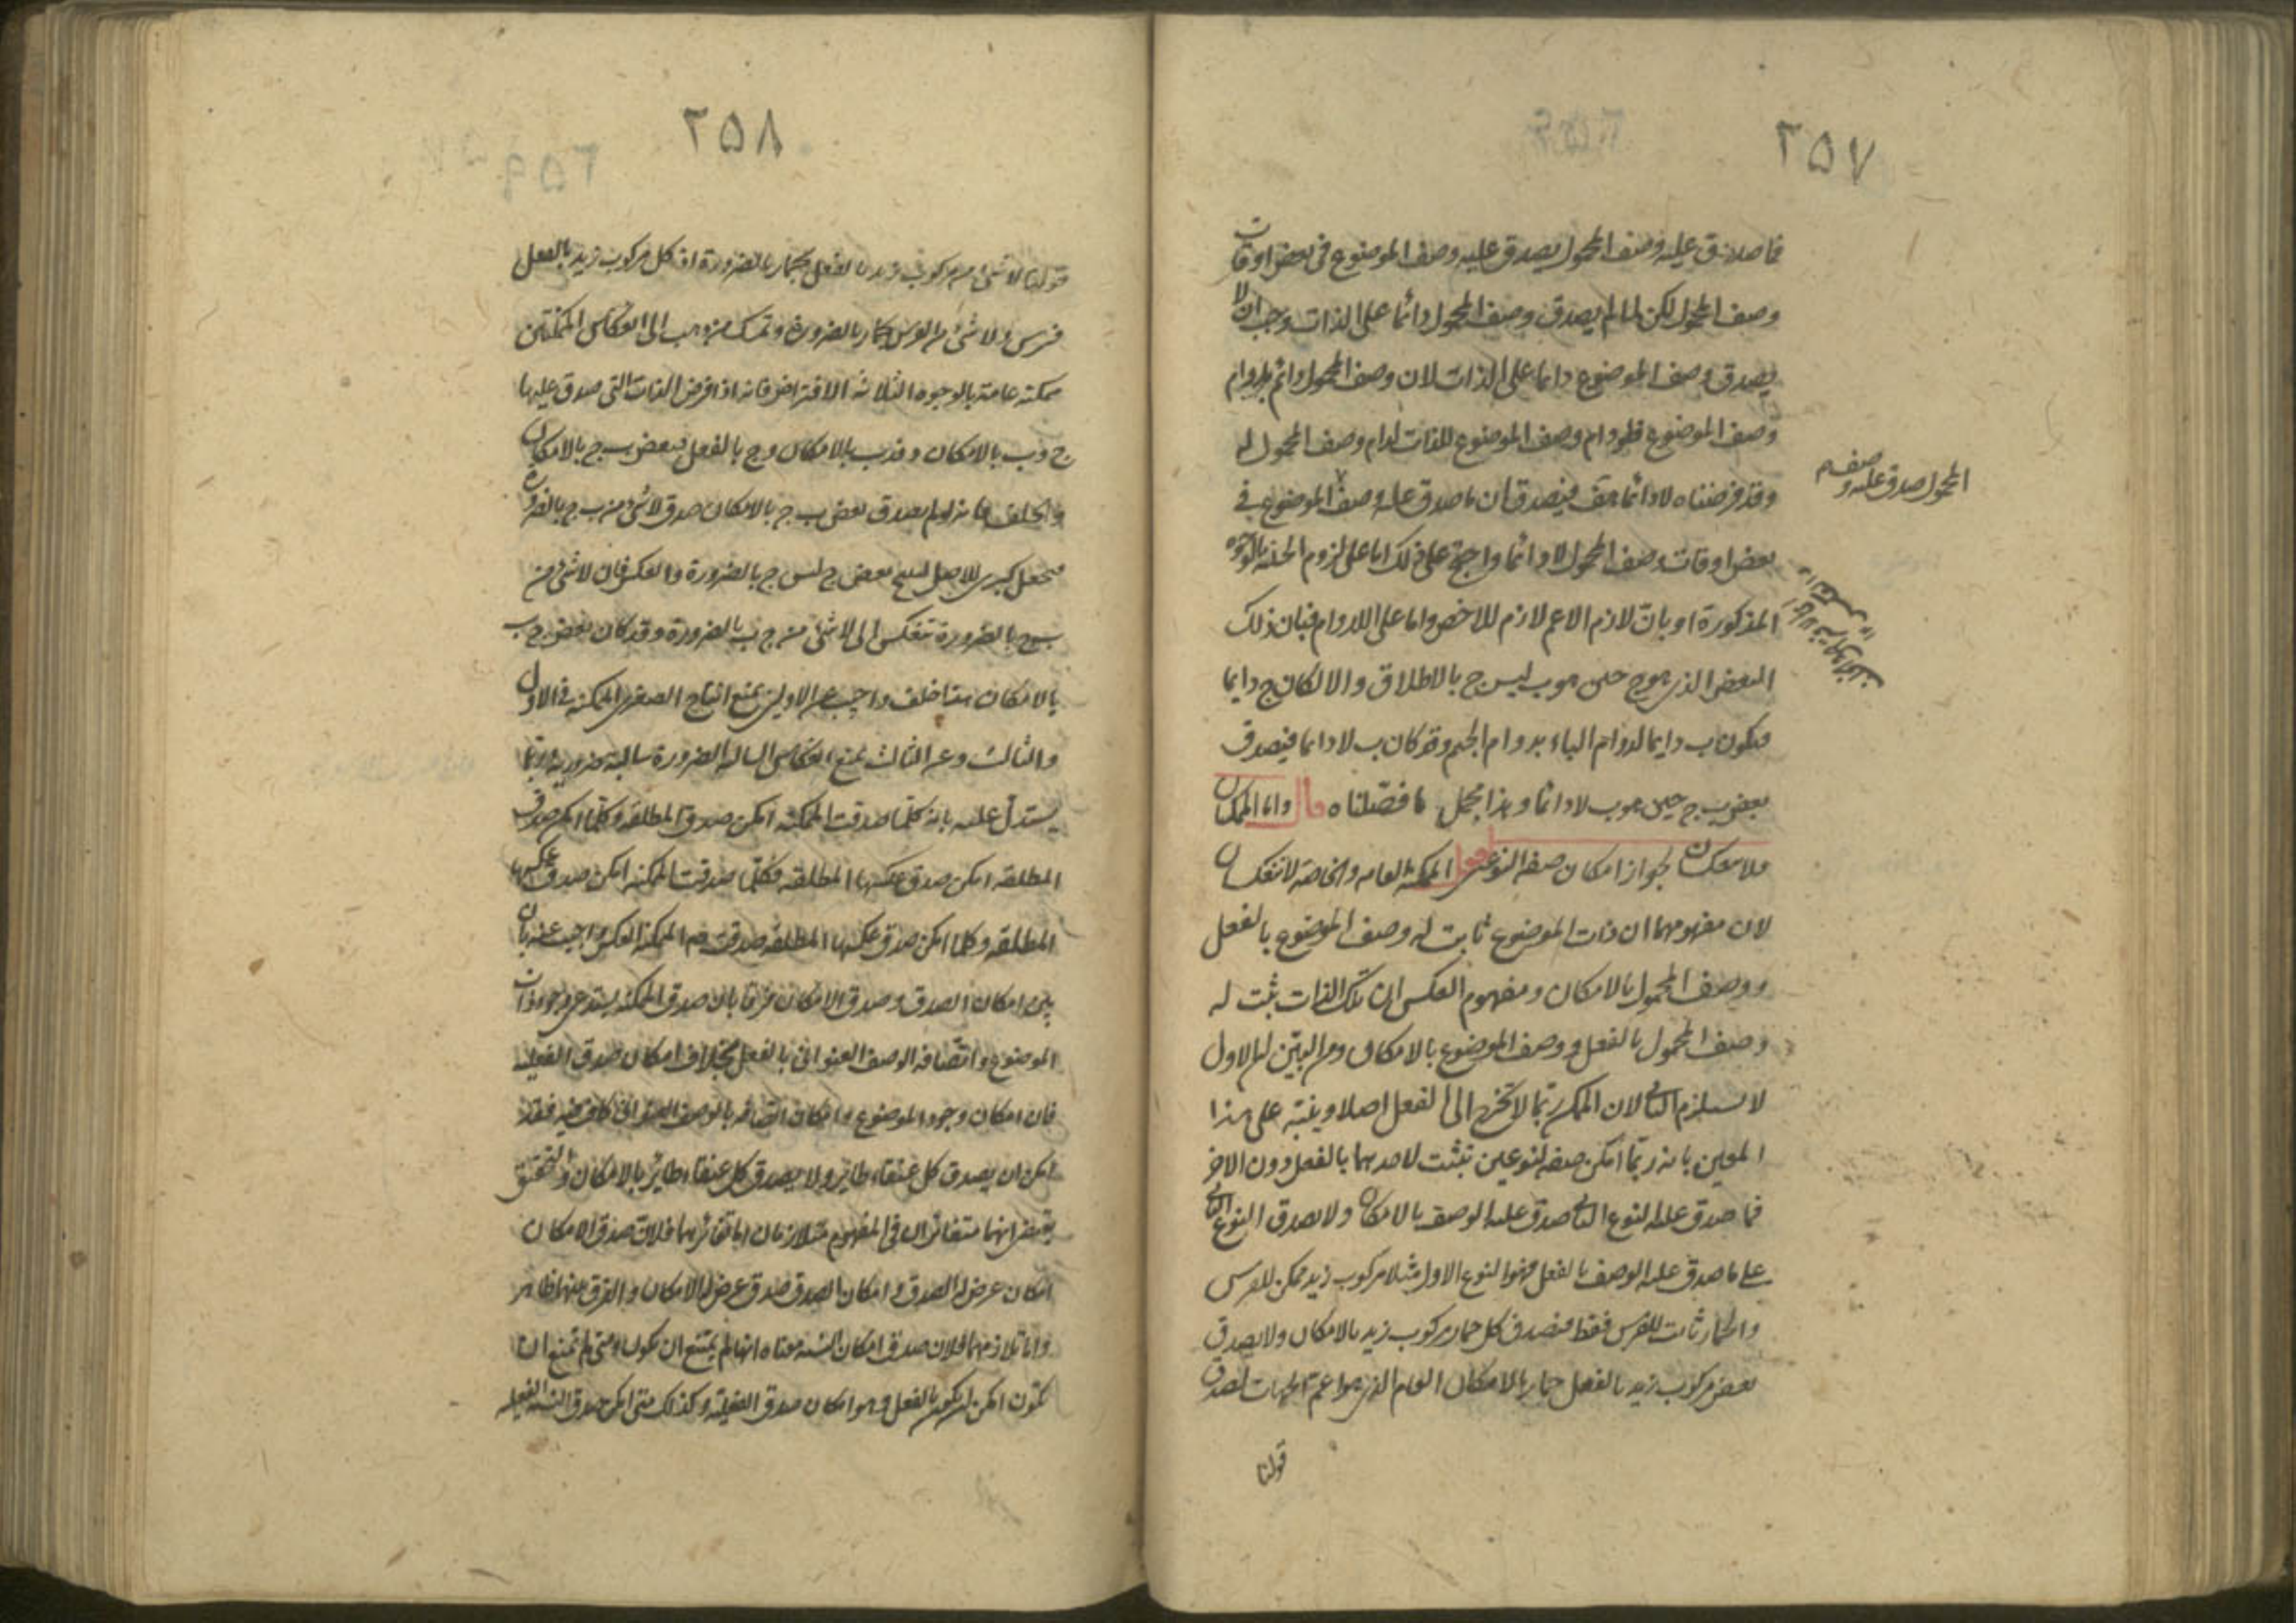 ٢٥٧
فما صدق عليه وصف المحمول يصدق عليه وصف الموضوع في بعض اوقات
وصف المحمول لكن لما لم يصدق وصف المحمول دائما على الذات وجب ان لا
يصدق وصف الموضوع دائما على الذات لان وصف المحمول دائم بدوام
وصف الموضوع فلو دام وصف الموضوع للذات لدام وصف المحمول له
وقد فرضناه لا دائما هف فيصدق ان ما صدق عليه وصف الموضوع في
المحمول صدق عليه وصف
بعض اوقات وصف المحمول لا دائما واحتج على ذلك اما على لزوم الحينية بالوجوه
المذكورة او بان لازم الاعم لازم للاخص واما على اللادوام فبان ذلك
البعض الذي هو ج حين هو ب ليس ج بالاطلاق والا لكان ج دايما
فيكون ب دايما لدوام الباء بدوام الجيم وقد كان ب لا دايما فيصدق
بعض ب ج حين هو ب لا دائما وهذا مجمل ما فصلناه قال واما الممكنتان
فلا تنعكسان لجواز امكان صفة لنوعين اقول الممكنة العامه والخاصة لا تنعكسان
لان مفهومهما ان ذات الموضوع ثابت له وصف الموضوع بالفعل
ووصف المحمول بالامكان ومفهوم العكس ان تلك الذات ثبت له
وصف المحمول بالفعل ووصف الموضوع بالامكان ومن البين ان الاول
لا يستلزم الثاني لان الممكن ربما لا يخرج الى الفعل اصلا وينبه على هذا
المعين بانه ربما امكن صفة لنوعين تثبت لاحدهما بالفعل دون الاخر
فما صدق عليه النوع الثاني صدق عليه الوصف بالامكان ولا يصدق النوع الثاني
على ما صدق عليه الوصف بالفعل فهو النوع الاول مثلا مركوب زيد ممكن للفرس
والحمار ثابت للفرس فقط فيصدق كل حمار مركوب زيد بالامكان ولا يصدق
بعض مركوب زيد بالفعل حمار بالامكان العام الذي هو اعم الجهات لصدق
قولنا
٢٥٨
قولنا لا شيء من مركوب زيد بالفعل بحمار بالضرورة اذ كل مركوب زيد بالفعل
فرس ولا شيء من الفرس بحمار بالضرورة وتمسك من ذهب الى انعكاس الممكنتين
ممكنة عامة بالوجوه الثلاثة الافتراض فانه اذا فرض الذات التي صدق عليها
ج د وب بالامكان و فد ب بالامكان وج بالفعل فبعض ب ج بالامكان
والخلف فانه لو لم يصدق بعض ب ج بالامكان صدق لا شيء من ب ج بالضرورة
فيجعل كبرى للاصل لينتج بعض ج ليس ج بالضرورة والعكس فان لا شيء من
ب ج بالضرورة تنعكس الى لا شيء من ج ب بالضرورة وقد كان بعض ج ب
بالامكان هذا خلف واجيب عن الاولين بمنع انتاج الصغرى الممكنة في الاول
والثالث وعن الثالث بمنع انعكاس السالبة الضرورة سالبة ضرورية وربما
يستدل عليه بانه كلما صدقت الممكنة امكن صدق المطلقة وكلما امكن صدق
المطلقه امكن صدق عكسها المطلقه فكلما صدقت الممكنة امكن صدق عكسها
المطلقه وكلما امكن صدق عكسها المطلقه صدقت هم الممكنة العكس واجيب عنه بان
بين امكان الصدق وصدق الامكان فرقا بان صدق الممكنة يستدعي وجود ذات
الموضوع واتصافه الوصف العنواني بالفعل بخلاف امكان صدق الفعلية
فان امكان وجود الموضوع وامكان اتصافه بالوصف العنواني كاف فيه فقد
امكن ان يصدق كل عنقاء طاير ولا يصدق كل عنقاء طائر بالامكان والتحقيق
يقتضي انهما متغائران في المفهوم متلازمان اما تغائرهما فلان صدق الامكان
امكان عرض له الصدق وامكان الصدق صدق عرض له الامكان والفرق بينهما ظاهر
واما تلازمهما فلان صدق امكان النسبة معناه انها لم يمتنع ان تكون ومتى لم تمتنع ان
تكون امكن ان تكون بالفعل وهو امكان صدق الفعلية وكذلك متى امكن صدق النسبة الفعلية